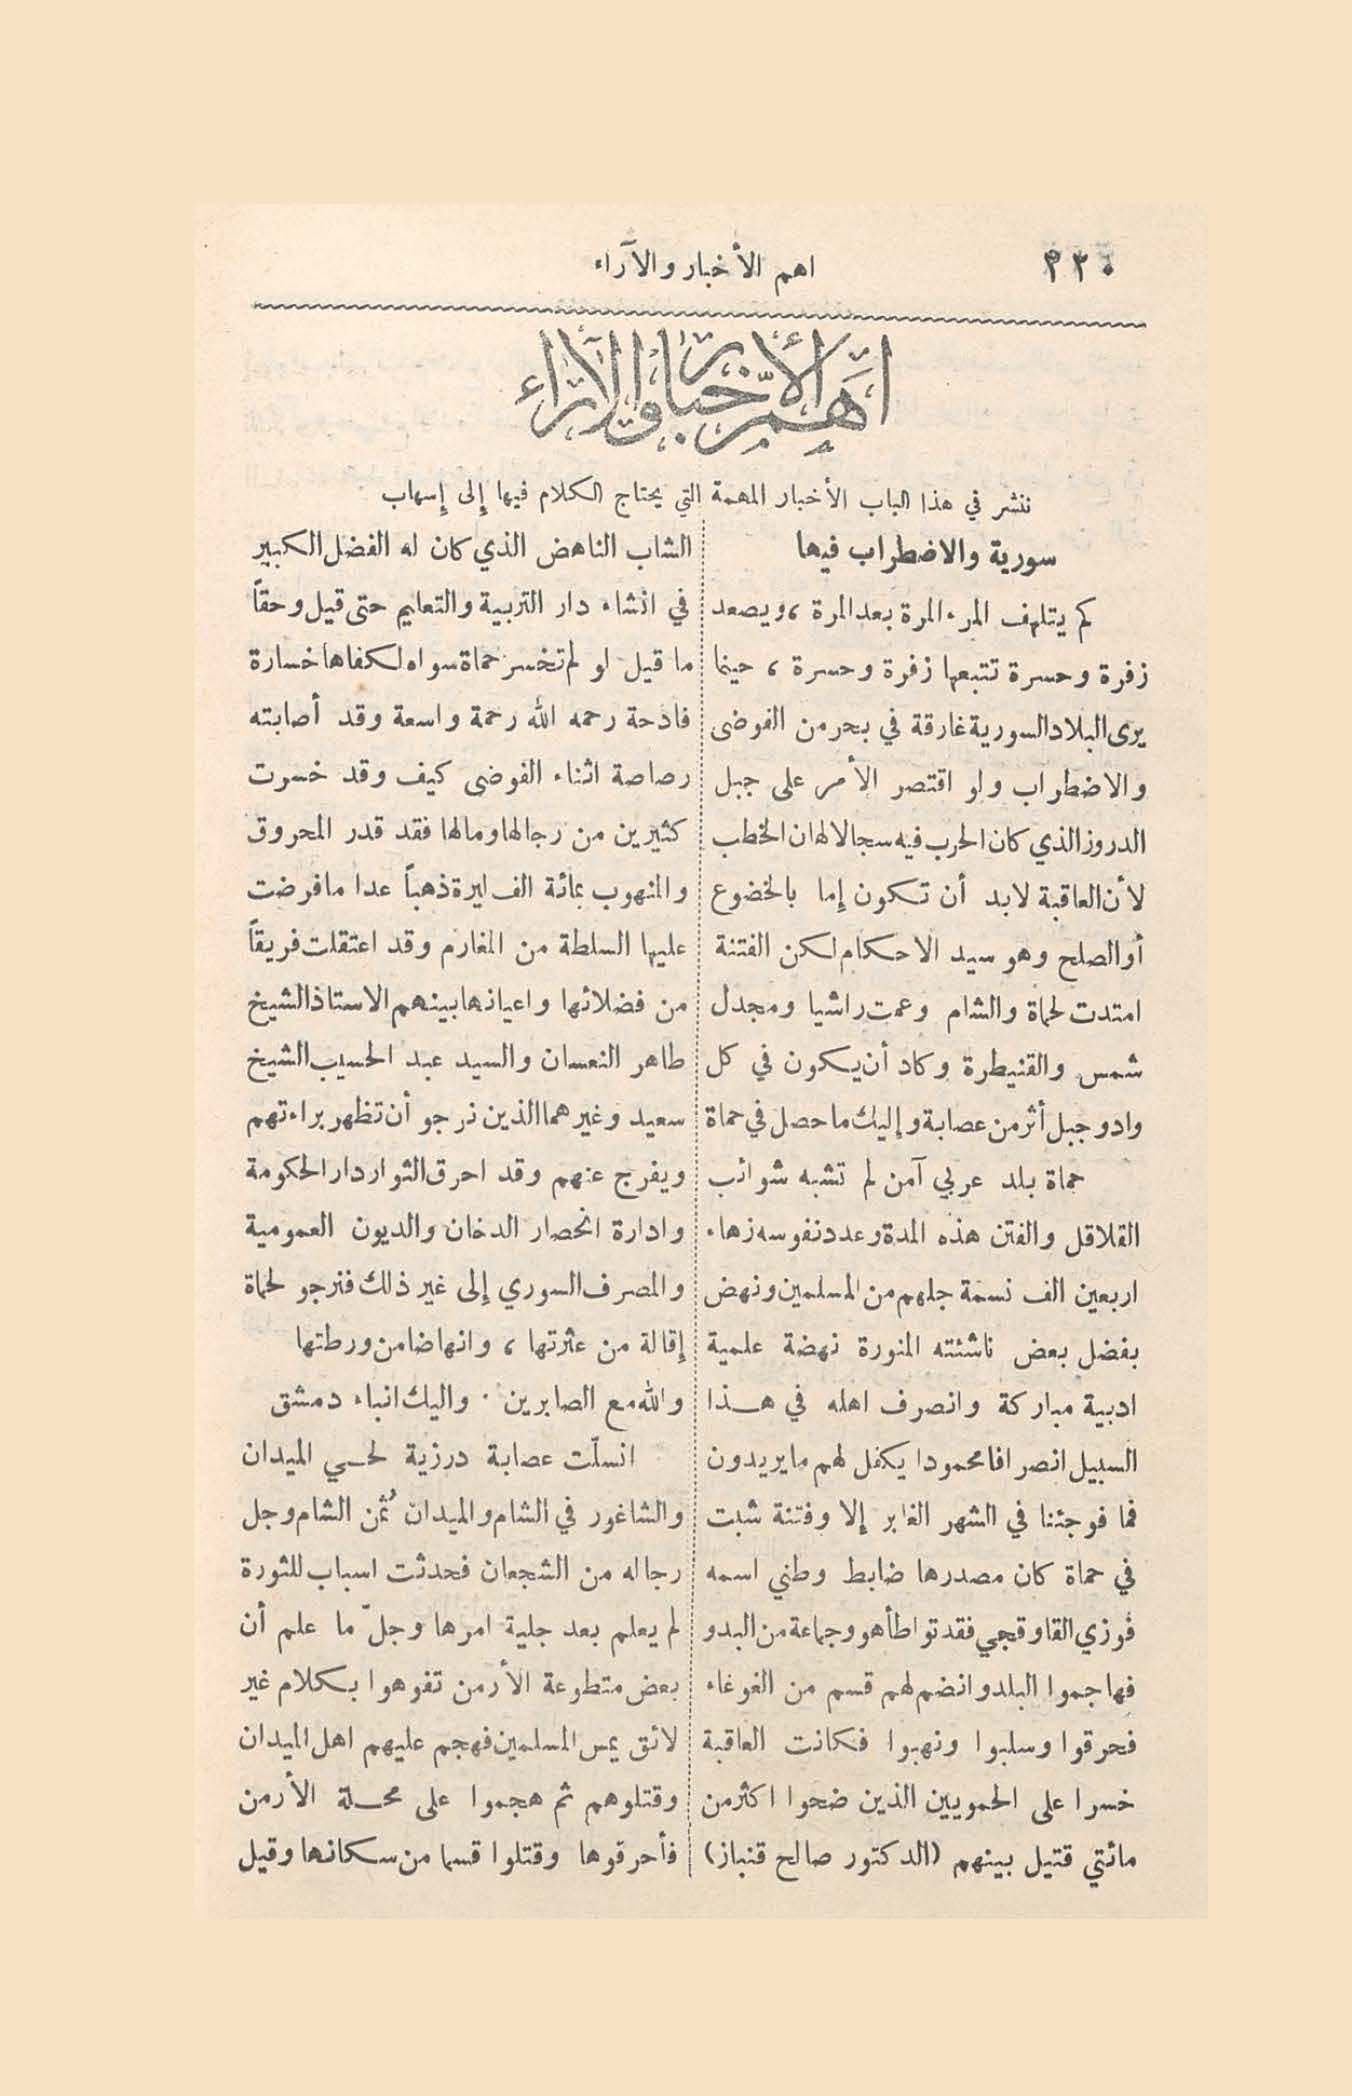 ٣٣٠
اهم الأخبار والآراء
اهم الأخبار والآراء
ننشر في هذا الباب الأخبار المهمة التي يحتاج الكلام فيها إلى إسهاب
سورية والاضطراب فيها
كم يتلهف المرء المرة بعد المرة ، ويصعد
زفرة وحسرة تتبعها زفرة وحسرة ، حينما
يرى البلاد السورية غارقة في بحر من الفوضى
والاضطراب ولو اقتصر الأمر على جبل
الدروز الذي كان الحرب فيه سجالا لهان الخطب
لأن العاقبة لابد أن تكون إما بالخضوع
أو الصلح وهو سيد الاحكام لكن الفتنة
امتدت لحماة والشام وعمت راشيا ومجدل
شمس والقنيطرة وكاد أن يكون في كل
واد وجبل أثر من عصابة وإليك ما حصل في حماة
حماة بلد عربي آمن لم تشبه شوائب
القلاقل والفتن هذه المدة وعدد نفوسه زهاء
اربعين الف نسمة جلهم من المسلمين ونهض
بفضل بعض ناشئته المنورة نهضة علمية
ادبية مباركة وانصرف اهله في هذا
السبيل انصرافا محمودا يكفل لهم ما يريدون
فما فوجئنا في الشهر الغابر إلا وفتنة شبت
في حماة كان مصدرها ضابط وطني اسمه
فوزي القاوقجي فقد تواطأ هو وجماعة من البدو
فهاجموا البلد وانضم لهم قسم من الغوغاء
فحرقوا وسلبوا ونهبوا فكانت العاقبة
خسرا على الحمويين الذين ضحوا اكثر من
مائتي قتيل بينهم (الدكتور صالح قنباز)
الشاب الناهض الذي كان له الفضل الكبير
في انشاء دار التربية والتعليم حتى قيل وحقاً
ما قيل لو لم تخسر حماة سواه لكفاها خسارة
فادحة رحمه الله رحمة واسعة وقد أصابته
رصاصة اثناء الفوضى كيف وقد خسرت
كثيرين من رجالها ومالها فقد قدر المحروق
والمنهوب بمائة الف ليرة ذهباً عدا ما فرضت
عليها السلطة من المغارم وقد اعتقلت فريقاً
من فضلائها واعيانها بينهم الاستاذ الشيخ
طاهر النعسان والسيد عبد الحسيب الشيخ
سعيد وغيرهما الذين نرجو أن تظهر براءتهم
ويفرج عنهم وقد احرق الثوار دار الحكومة
وادارة انحصار الدخان والديون العمومية
والمصرف السوري إلى غير ذلك فنرجو لحماة
إقالة من عثرتها ، وانهاضا من ورطتها
والله مع الصابرين . واليك انباء دمشق
انسلّت عصابة درزية لحي الميدان
والشاغور في الشام والميدان ثُمن الشام وجل
رجاله من الشجعان فحدثت اسباب للثورة
لم يعلم بعد جلية امرها وجلّ ما علم أن
بعض متطوعة الأرمن تفوهوا بكلام غير
لائق يمس المسلمين فهجم عليهم اهل الميدان
وقتلوهم ثم هجموا على محلة الأرمن
فأحرقوها وقتلوا قسما من سكانها وقيل